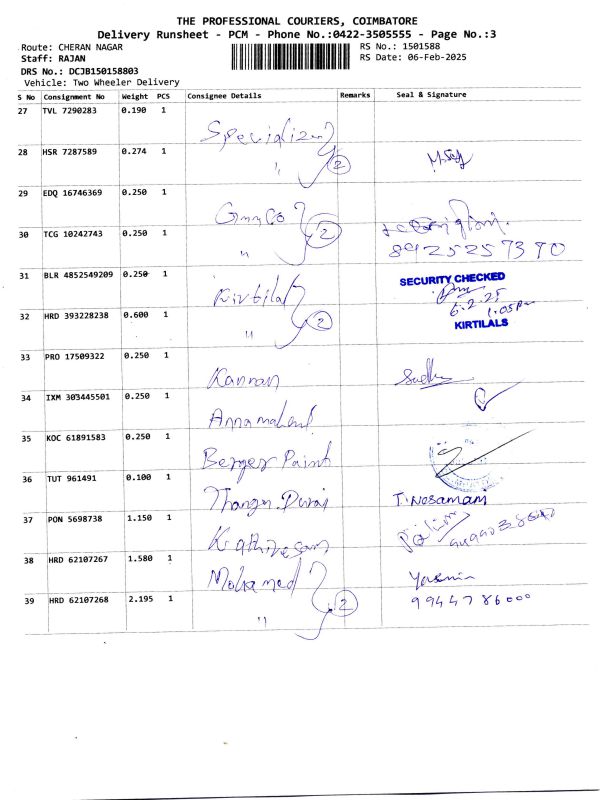 THE PROFESSIONAL COURIERS, COIMBATORE
Delivery Runsheet - PCM - Phone No.:0422-3505555 - Page No.:3
Route: CHERAN NAGAR RS No.: 1501588
Staff: RAJAN RS Date: 06-Feb-2025
DRS No.: DCJB150158803
Vehicle: Two Wheeler Delivery
S No Consignment No Weight PCS Consignee Details Remarks Seal & Signature
27 TVL 7290283 0.190 1
28 HSR 7287589 0.274 1 " 2
29 EDQ 16746369 0.250 1
30 TCG 10242743 0.250 1 " 2
8925257370
31 BLR 4852549209 0.250 1 Kirtilal SECURITY CHECKED
6.2.25
1.05pm
32 HRD 393228238 0.600 1 " 2 KIRTILALS
33 PRO 17509322 0.250 1 Kannan
34 IXM 303445501 0.250 1
35 KOC 61891583 0.250 1 Berger Paint
36 TUT 961491 0.100 1 Thangu Durai T. Nosamam
37 PON 5698738 1.150 1
38 HRD 62107267 1.580 1 Mohamed Yasmin
39 HRD 62107268 2.195 1 " 2 9944786000